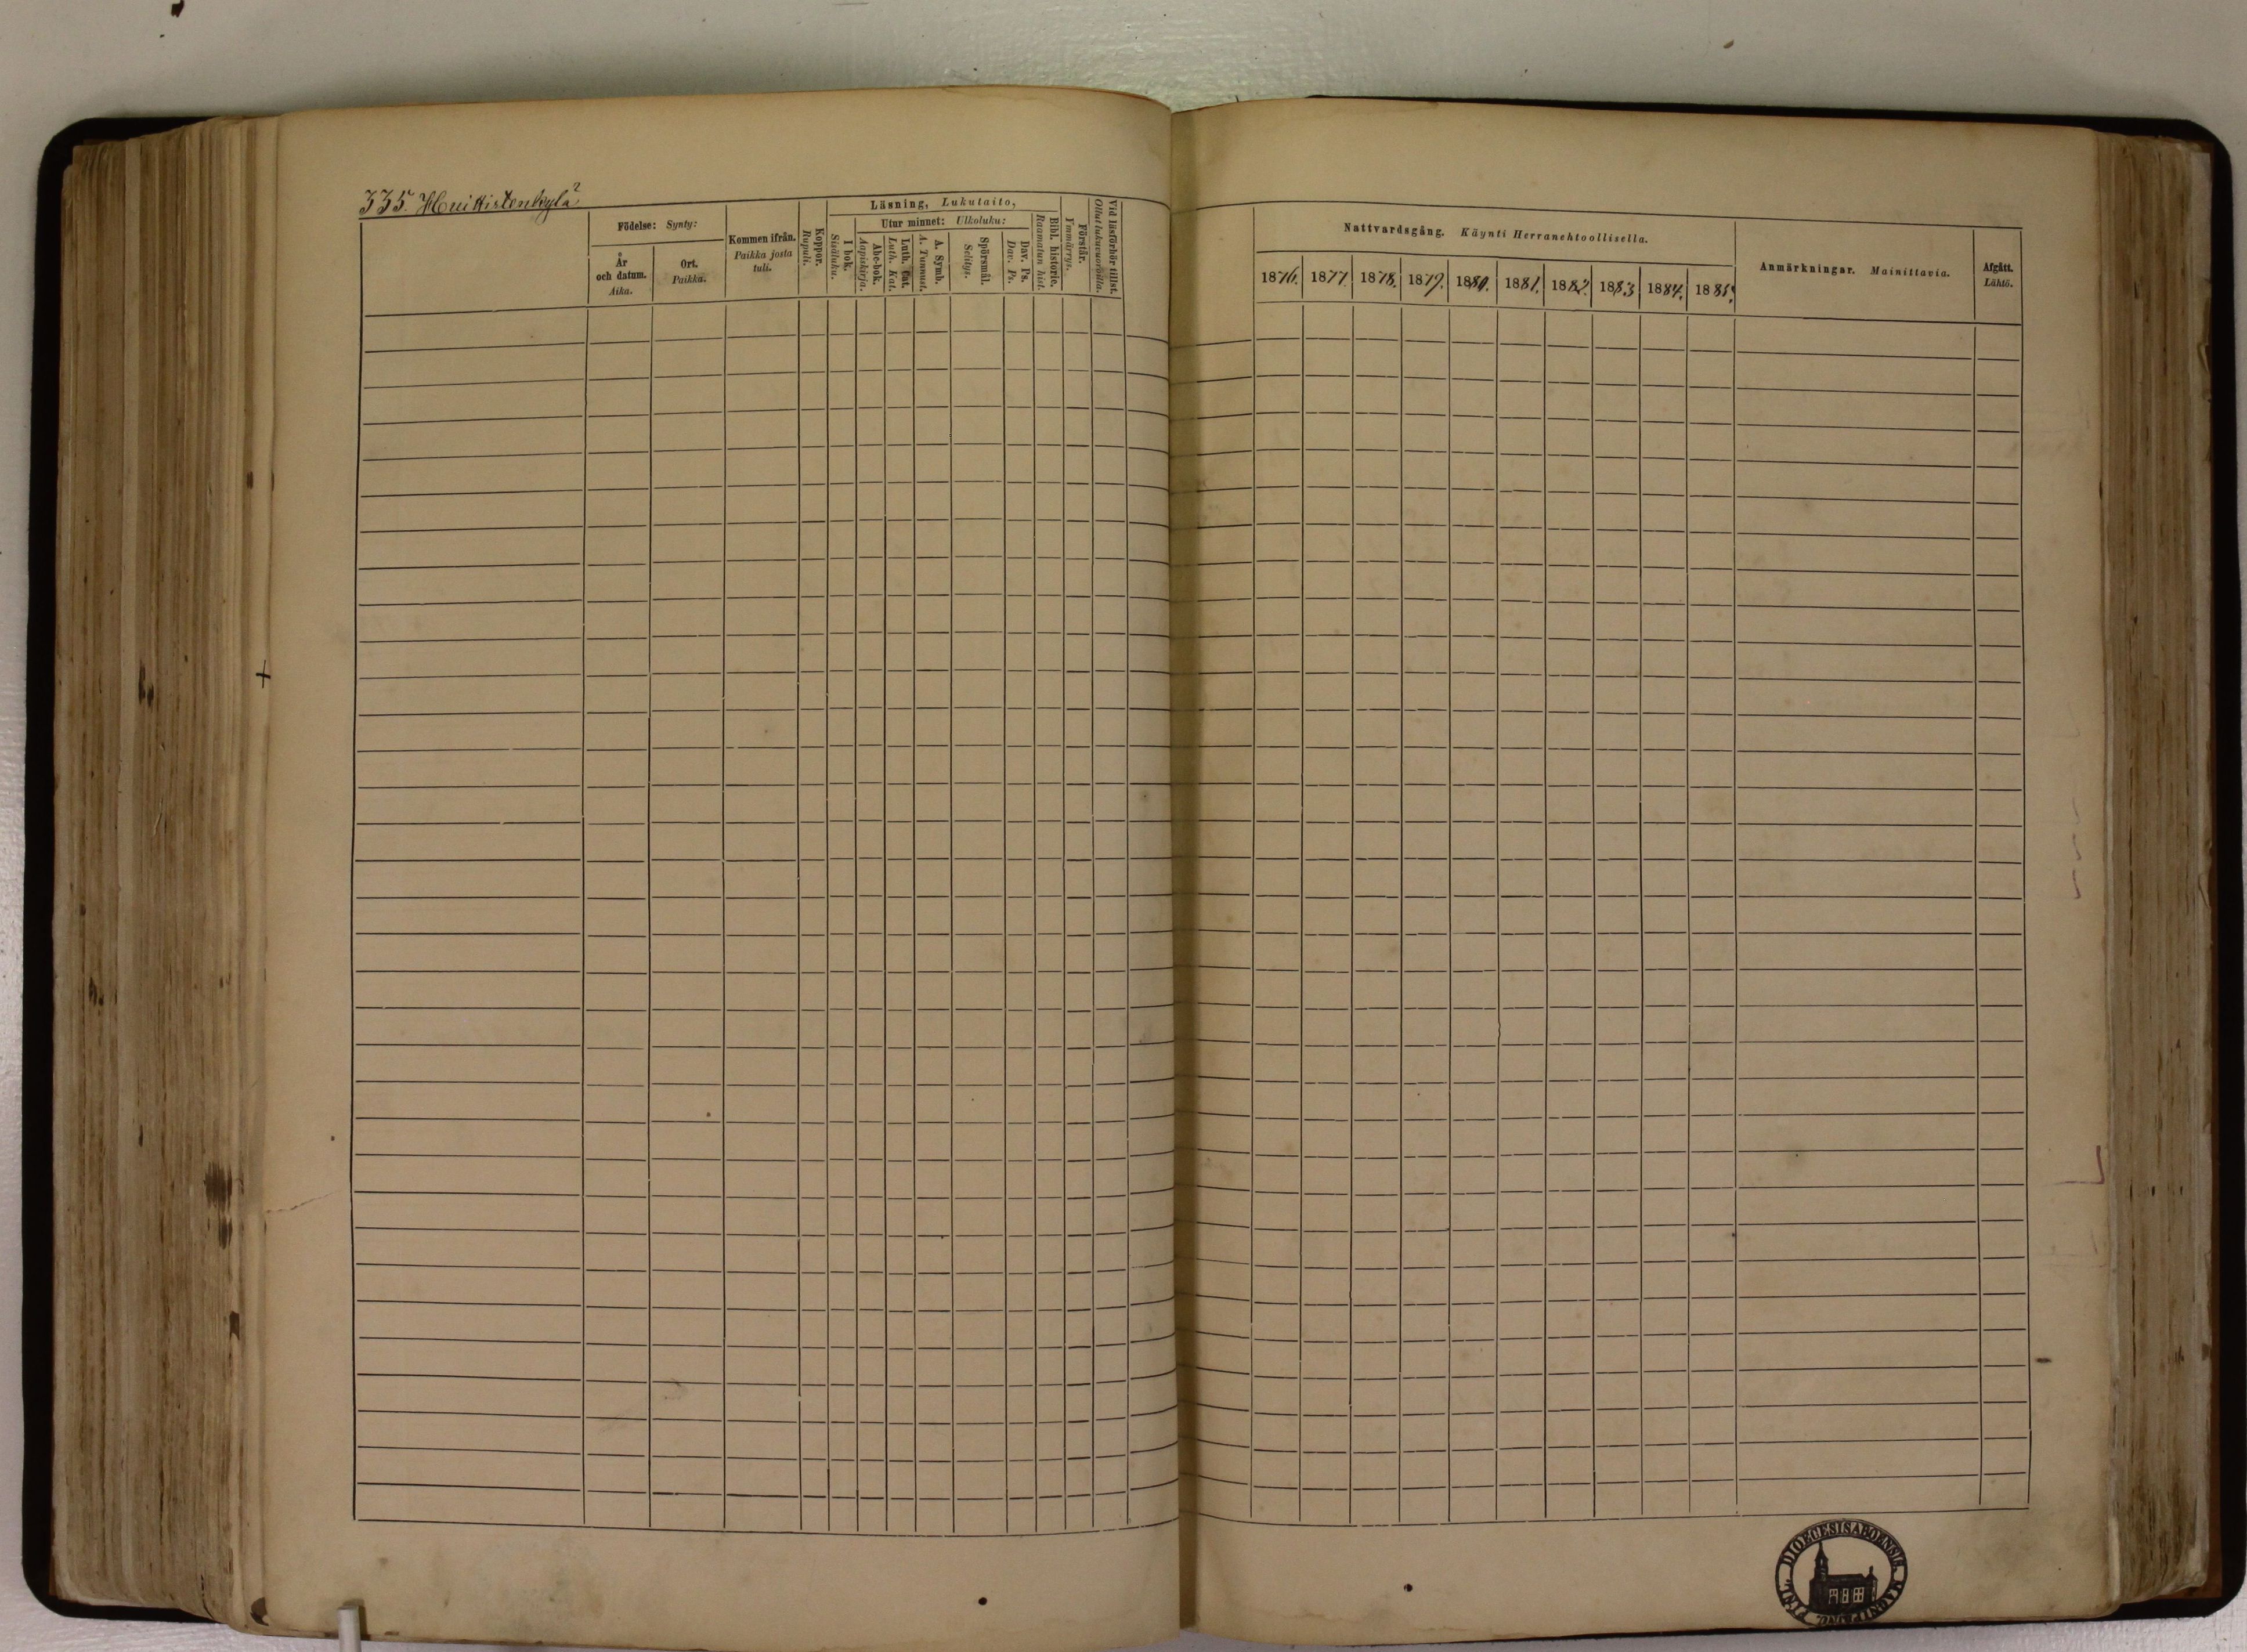 335. Huittistenkylä 2
Läsning, Lukutaito,
Födelse: Synty:
Kommen ifrån.
Paikka josta
tuli.
År
och datum.
Aika.
Ort.
Paikka.
Koppor.
Rupuli.
I bok.
Sisäluku.
Utur minnet: Ulkoluku:
Abc-bok.
Aapiskirja.
Luth. Cat.
Luth. Kat.
A. Symb.
A. Tunnust.
Spörsmål.
Selitys.
Dav. Ps.
Dav. Ps.
Bibl. historie.
Raamatun hist.
Förstår.
Ymmärrys.
Vid läsförhör tillst.
Ollut lukuvuoroilla.
Nattvardsgång. Käynti Herranehtoollisella.
1876. 1877. 1878. 1879. 1880. 1881. 1882. 1883 1884. 1885.
Anmärkningar. Mainittavia.
Afgått.
Lähtö.
DIOECESIS ABOENSIS
FINL.